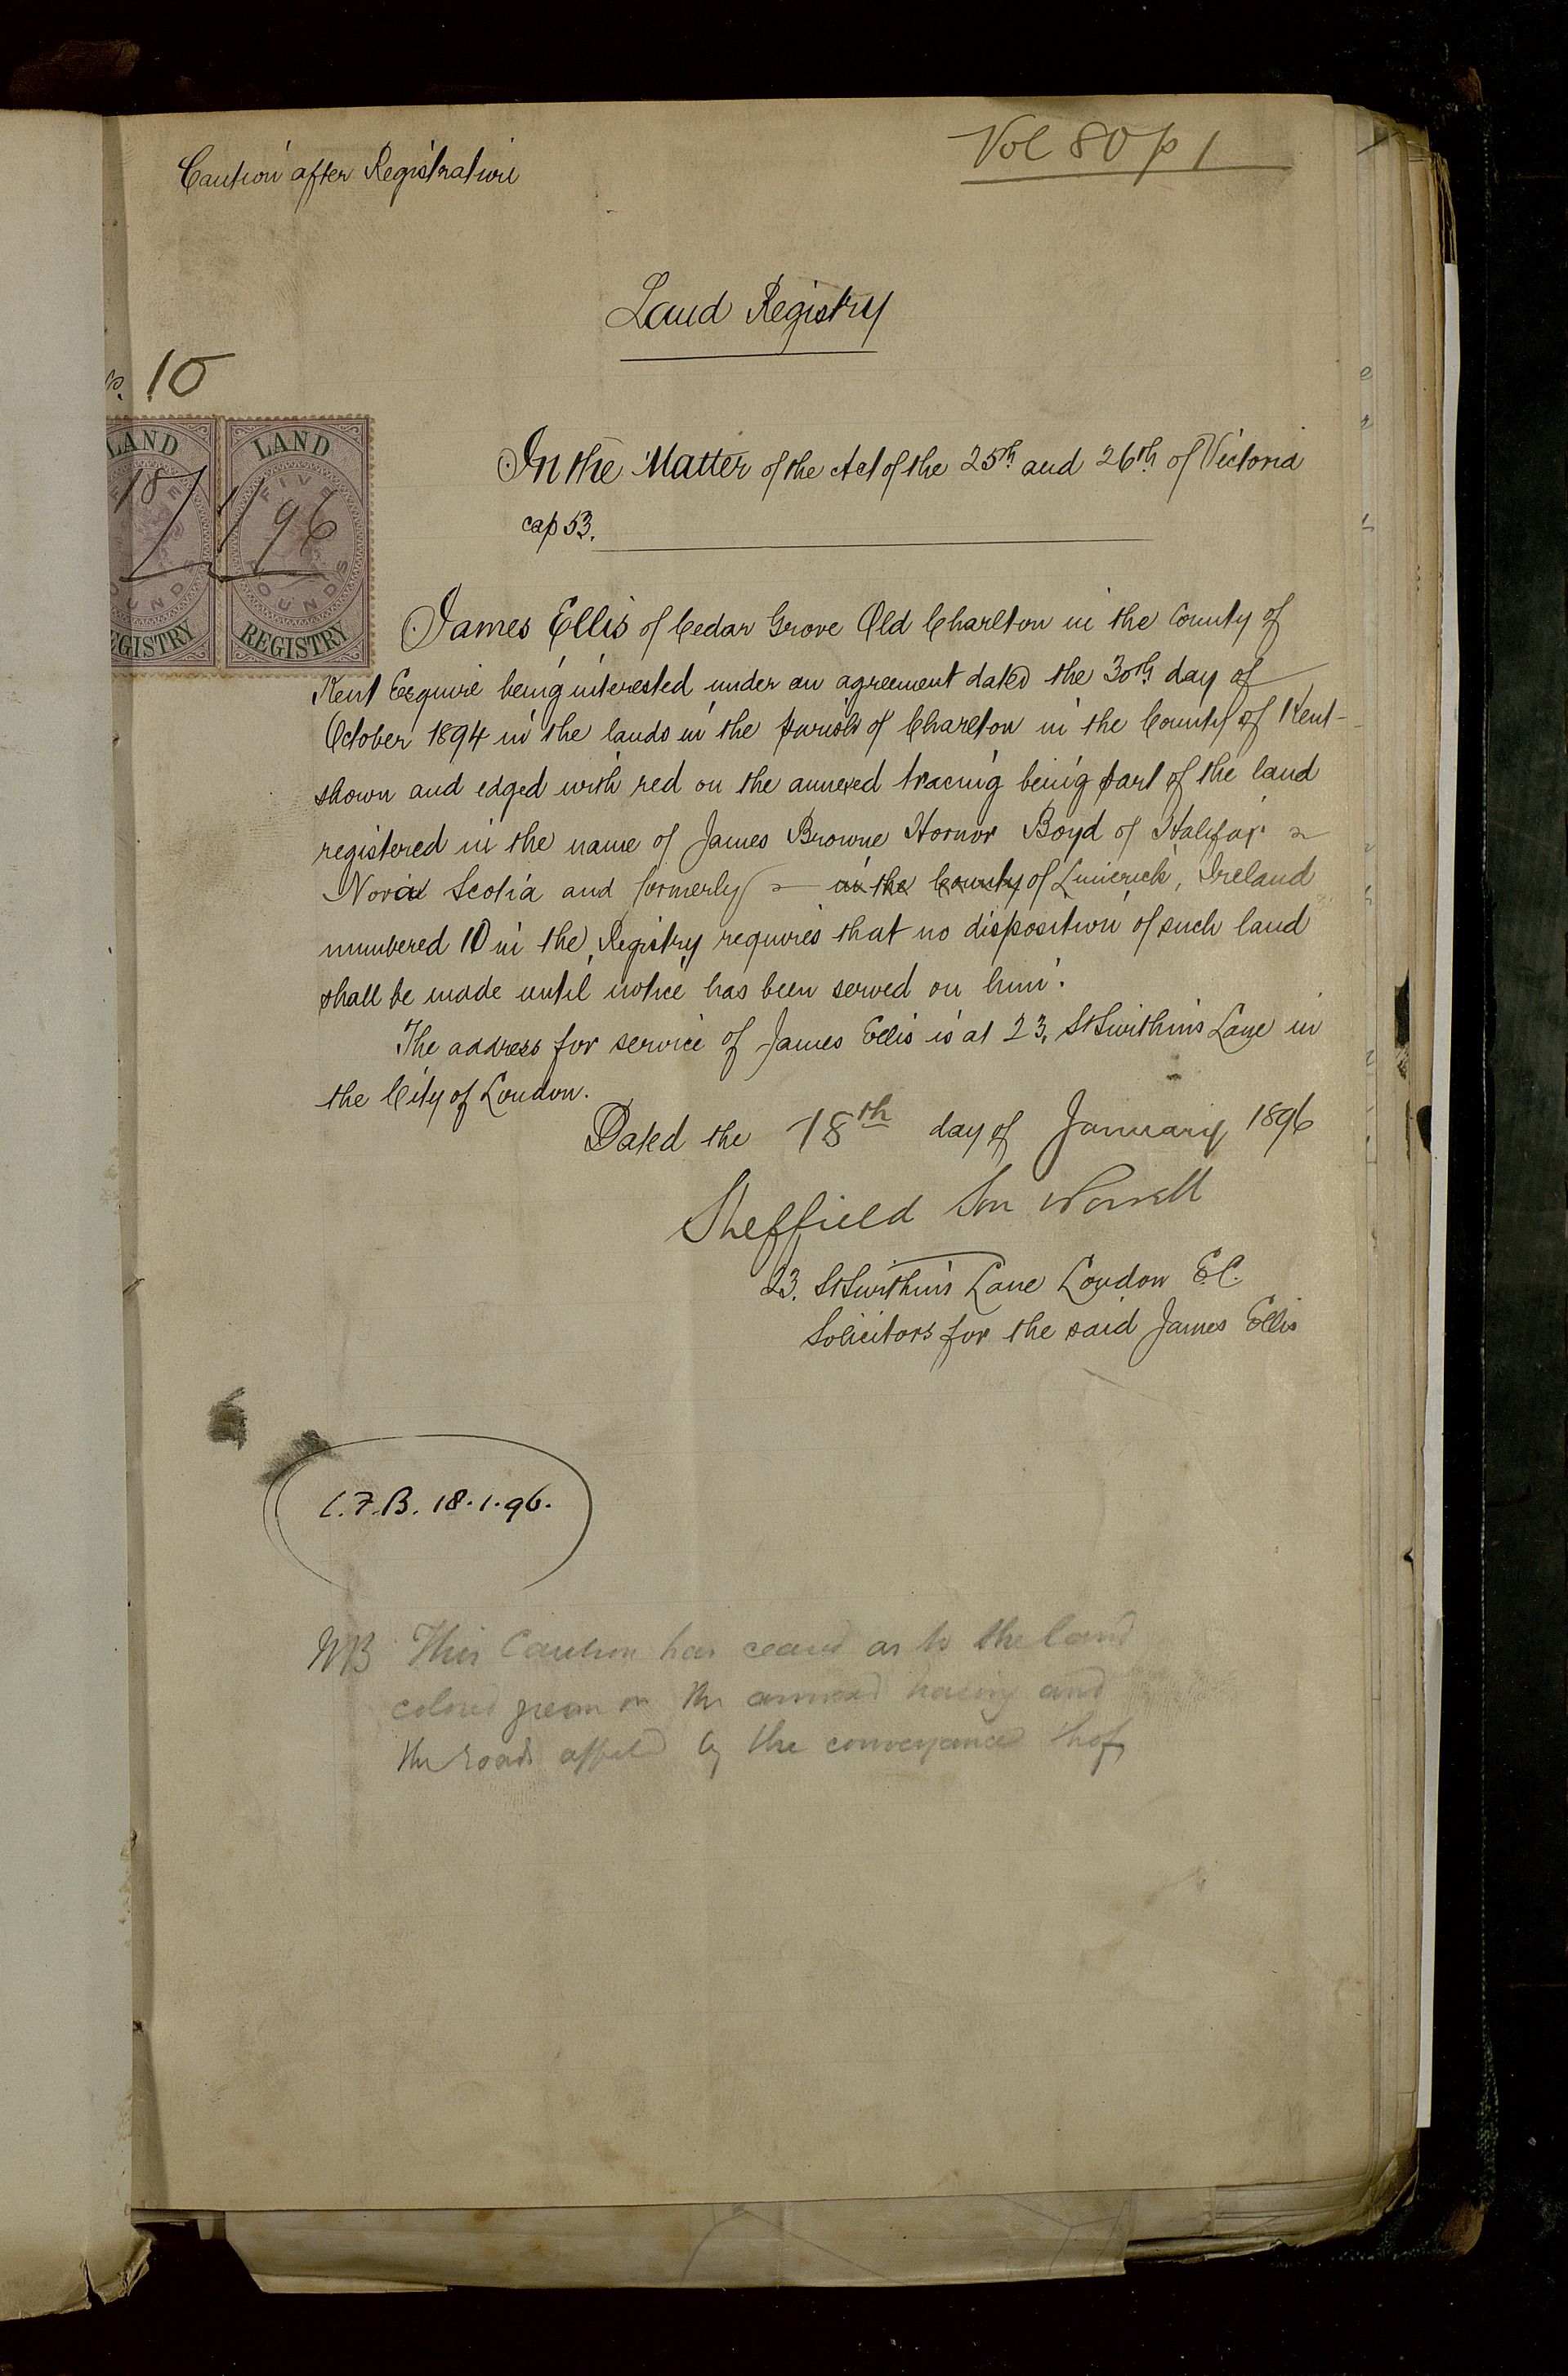 Vol 80 p 1
Caution after Registration
Land Registry
10
LAND
LAND
FIVE
18/1/96
POUNDS
REGISTRY
In the Matter of the Act of the 25th and 26th of Victoria
cap 53.
James Ellis of Cedar Grove Old Charlton in the County of
Kent Esquire being interested under an agreement dated the 30th day of
October 1894 in the lands in the parish of Charlton in the County of Kent
shown and edged with red on the annexed tracing being part of the land
registered in the name of James Browne Hornor Boyd of Halifax
Nova Scotia and formerly in the County of Limerick, Ireland
numbered 10 in the Registry requires that no disposition of such land
shall be made until notice has been served on him.
The address for service of James Ellis is at 23, St Swithins Lane in
the City of London.
Dated the 18th day of January 1896
Sheffield Son
23. St Swithins Lane London E.C.
Solicitors for the said James Ellis
C.F.B. 18.1.96.
NB This Caution has ceased as to the land
colored green on the annexed tracing and
the roads affected by the conveyance thof